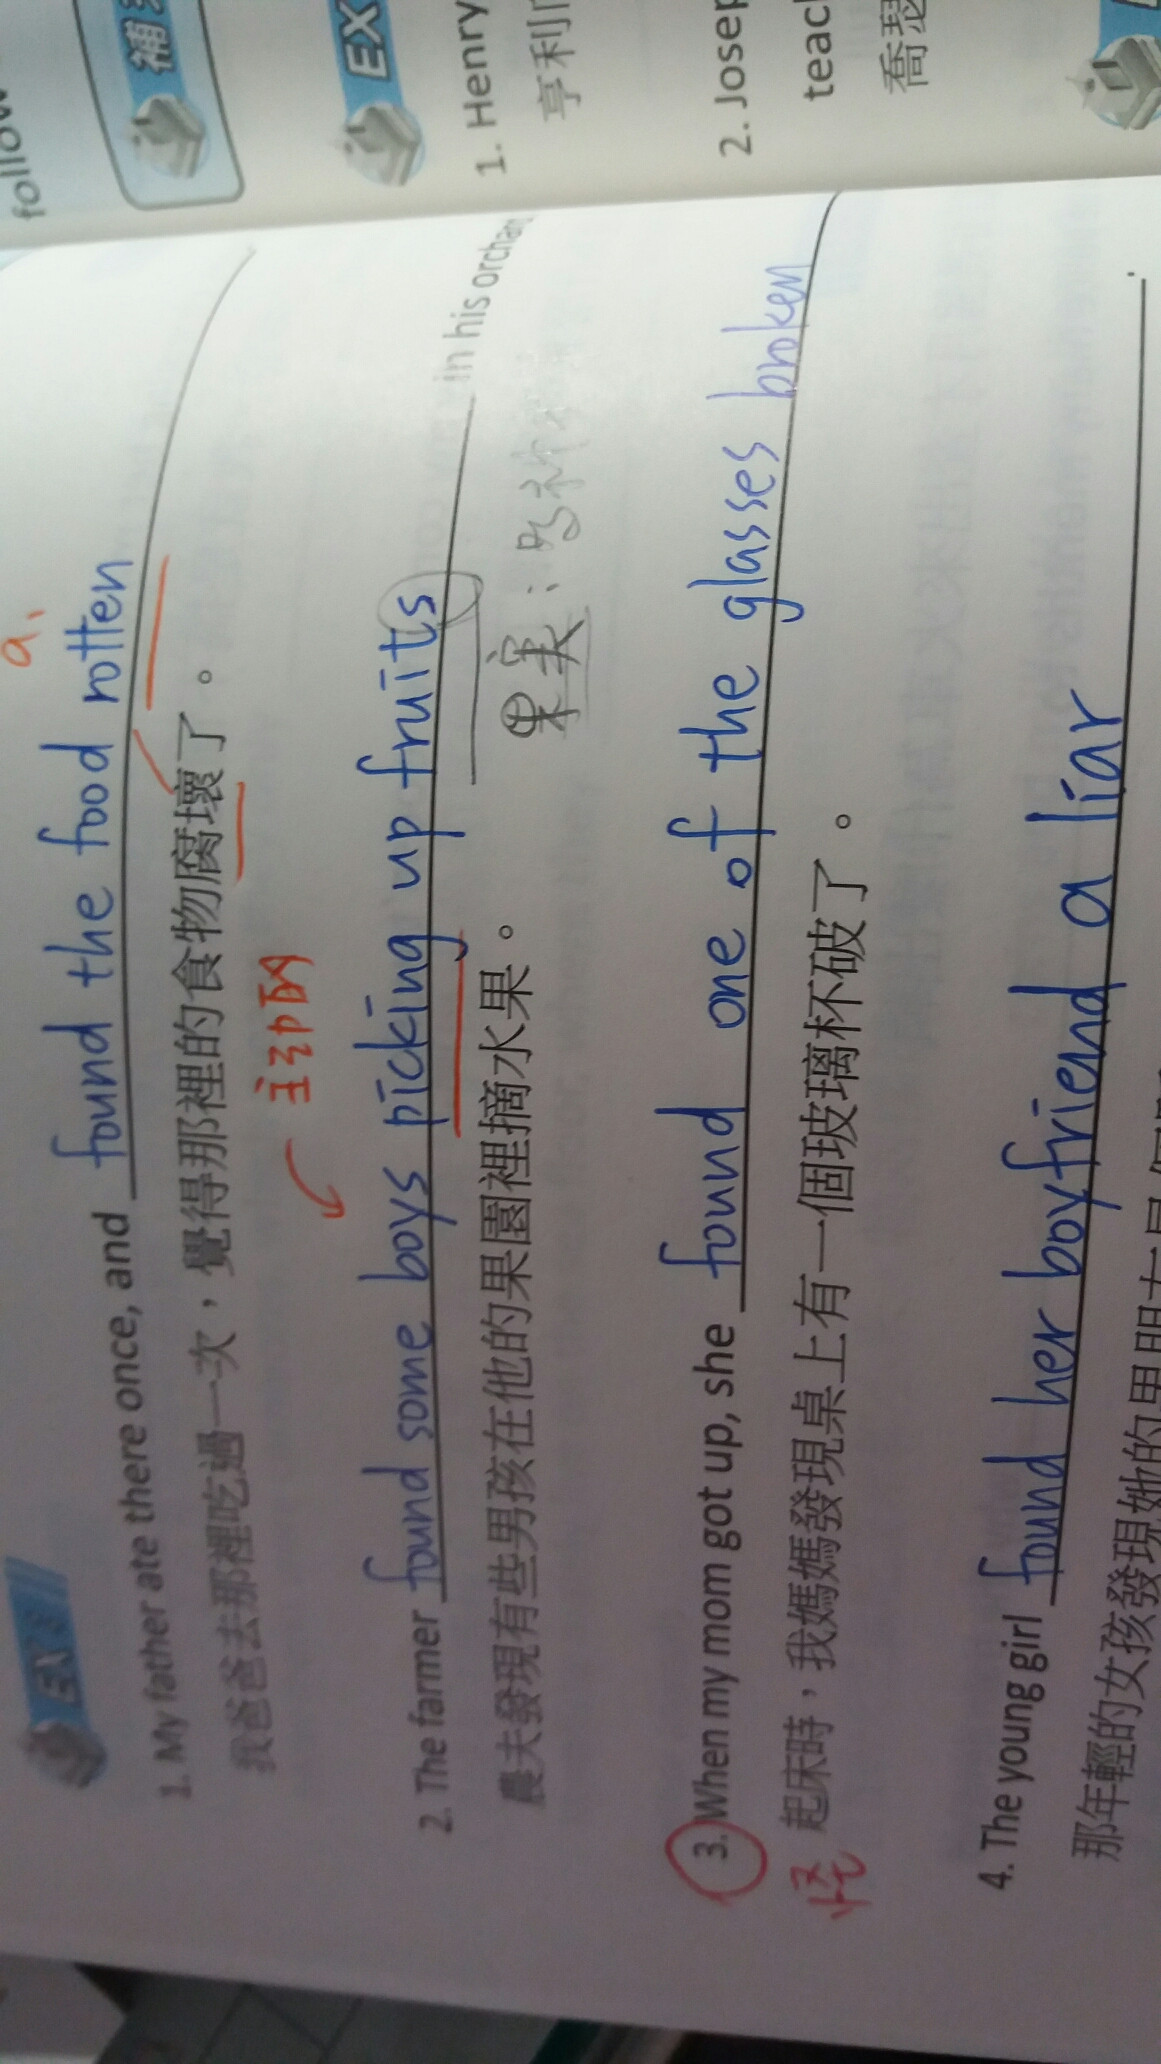 follow
補
EX
1. Henry
亨利
2. Josep
teac
喬瑟
EX
a.
1. My father ate there once, and found the food rotten
我爸爸去那裡吃過一次，覺得那裡的食物腐壞了。
主動
2. The farmer found some boys picking up fruits in his orchar
農夫發現有些男孩在他的果園裡摘水果。
果実：
3. When my mom got up, she found one of the glasses broken
怪 起床時，我媽媽發現桌上有一個玻璃杯破了。
4. The young girl found her boyfriend a liar.
那年輕的女孩發現她的男朋友是個